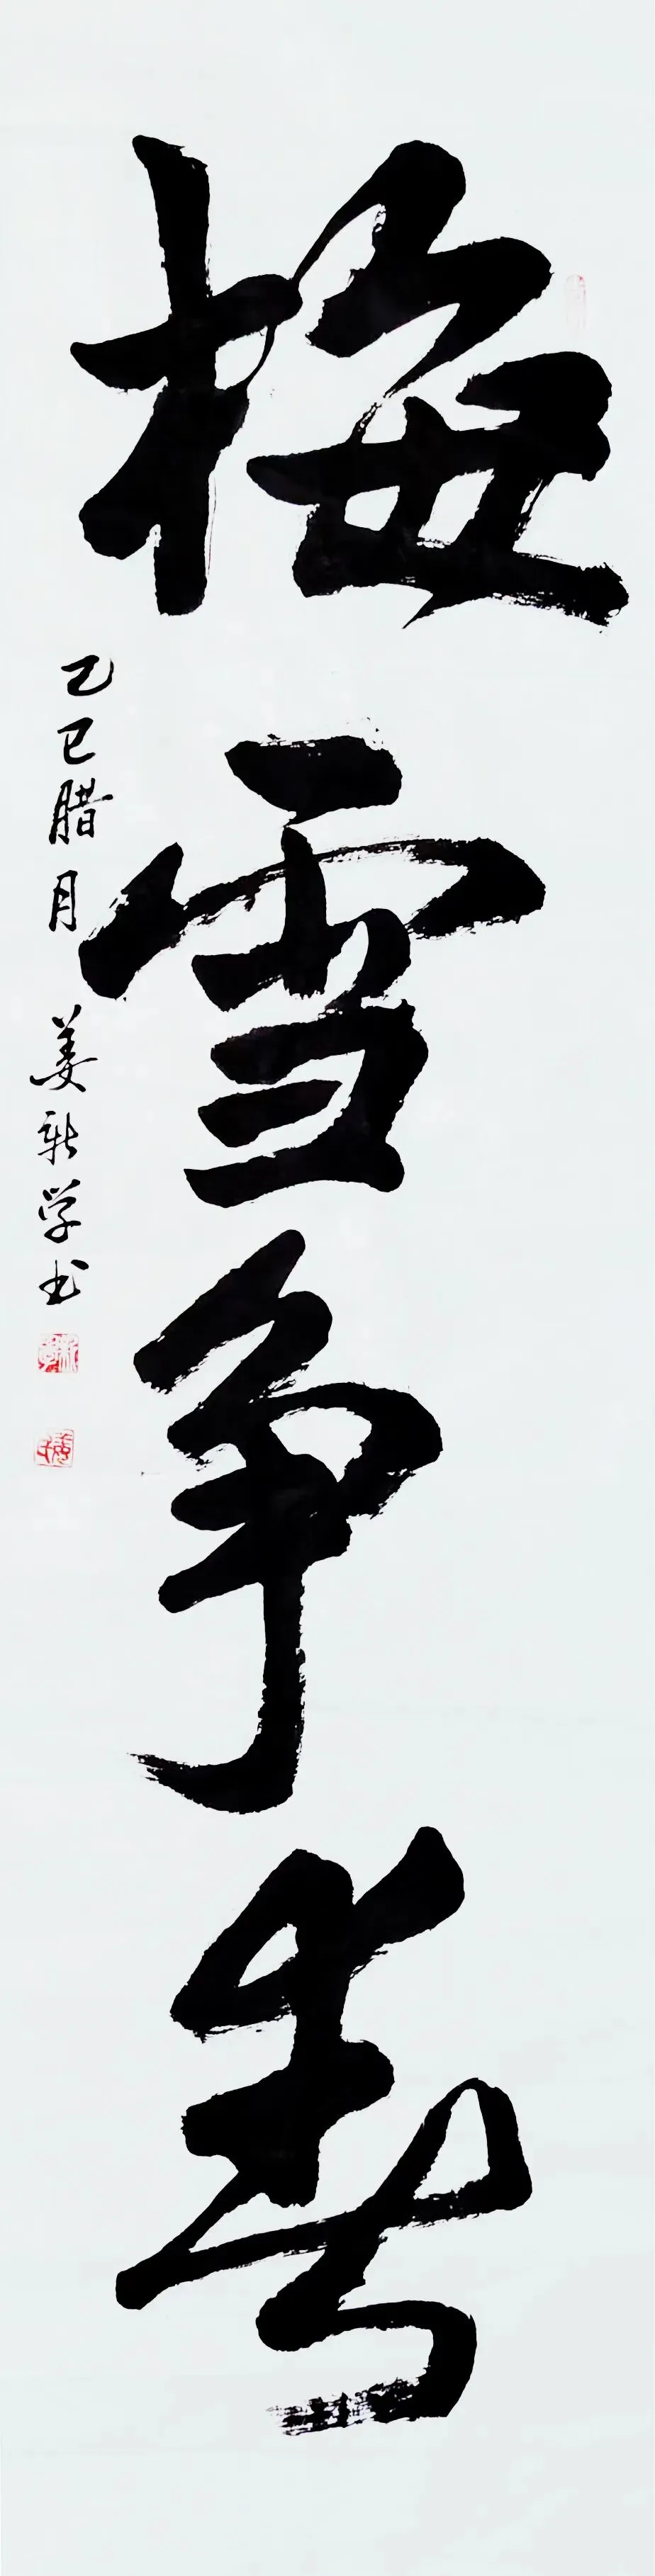 梅雪争春
乙巳腊月 姜新学书